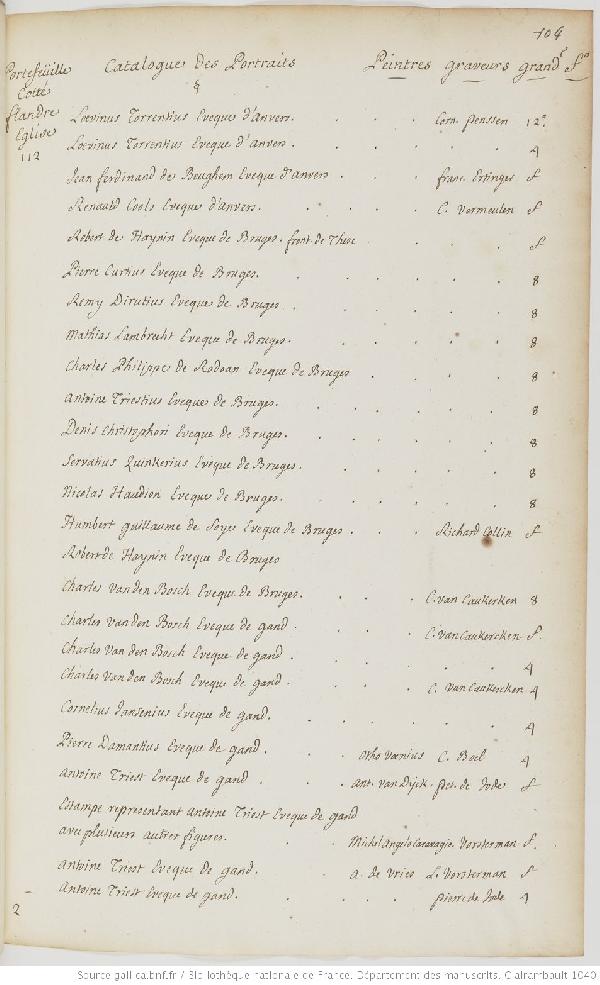 104
Portefeüille Cotté flandre Eglise 112
Catalogue Des Portraits Peintres graveurs grand.r f.o
Loevinus Torrentius Eveque d'anvers. Corn. penssen 12.o
Loevinus Torrentius Eveque d'anvers. 4
Jean ferdinand de Beughem Eveque d'anvers franc. Ertinger f
Renauld Cools Eveque d'anvers. C. Vermeulen f
Robert de Haynin Eveque de Bruges. front. de These f
Pierre Curtius Eveque de Bruges. 8
Remy Drutius Eveque de Bruges. 8
Mathias Lambrecht Eveque de Bruges. 8
Charles Philippe de Rodoan Eveque de Bruges 8
Antoine Triestius Eveque de Bruges. 8
Denis Christophori Eveque de Bruges. 8
Servatius Quinkerius Eveque de Bruges. 8
Nicolas Haudion Eveque de Bruges. 8
Humbert guillaume de Eveque de Bruges. Richard Collin f
Robert de Haynin Eveque de Bruges
Charles Vanden Bosch Eveque de Bruges. C. van Caukerken 8
Charles Van den Bosch Eveque de gand. C. van Caukercken f.
Charles Van den Bosch Eveque de gand. 4
Charles Van den Bosch Eveque de gand. C. Van Caukercken 4
Cornelius Jansenius Eveque de gand. 4
Pierre Damantius Eveque de gand. Otho Voenius C. Boel 4
Antoine Triest Eveque de gand. Ant. van Dijck. pet. de Jode f
Estampe representant Antoine Triest Eveque de gand
avec plusieurs autres figures. Michel Angelo Caravagio. Vorsterman f.
Antoine Triest Eveque de gand. a. de Vries L. Vorsterman f
Antoine Triest Eveque de gand. pierre de Jode 4
2
Source gallica.bnf.fr / Bibliothèque nationale de France. Département des manuscrits. Clairambault 1040